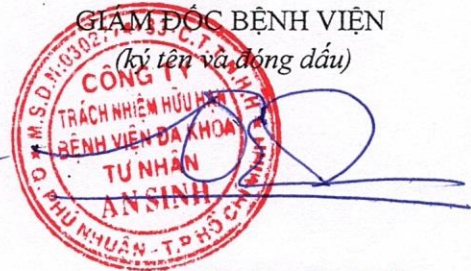 GIÁM ĐỐC BỆNH VIỆN
(ký tên và đóng dấu)
M.S.D.N:0302
C.T.T.N.H.H
CÔNG TY
TRÁCH NHIỆM HỮU HẠN
BỆNH VIỆN ĐA KHOA
TƯ NHÂN
AN SINH
Q. PHÚ NHUẬN - T.P HỒ CHÍ MINH